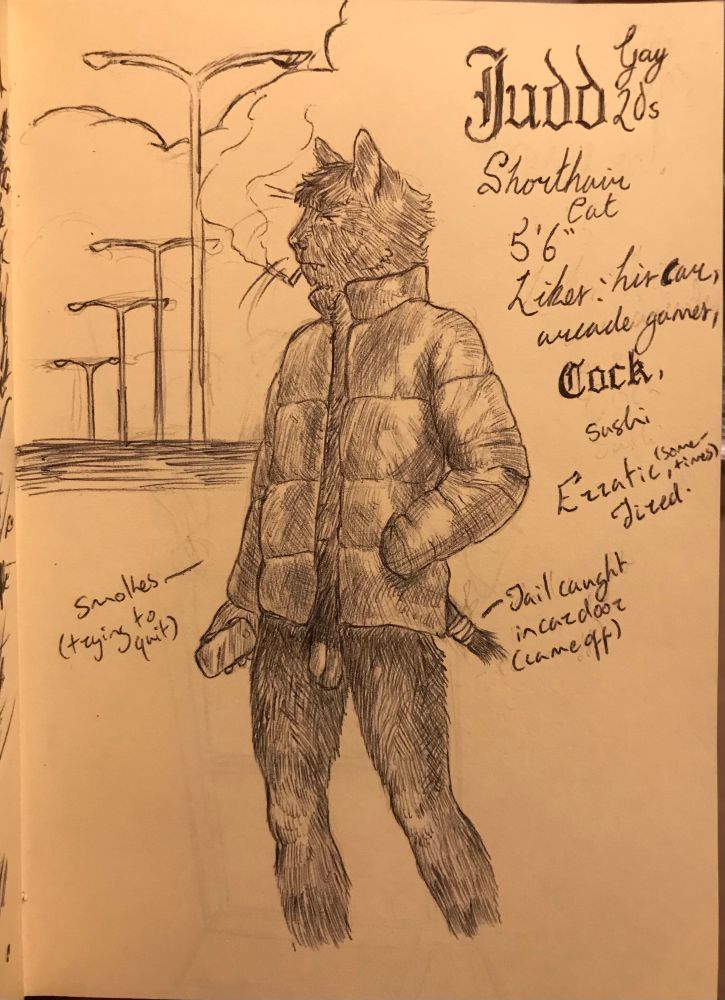 Judd
Gay
20s
Shorthair
Cat
5'6"
Likes: his car,
arcade games,
Cock,
sushi
Erratic, (some-
times)
Tired.
Smokes
(trying to
quit)
Tail caught
in car door
(came off)